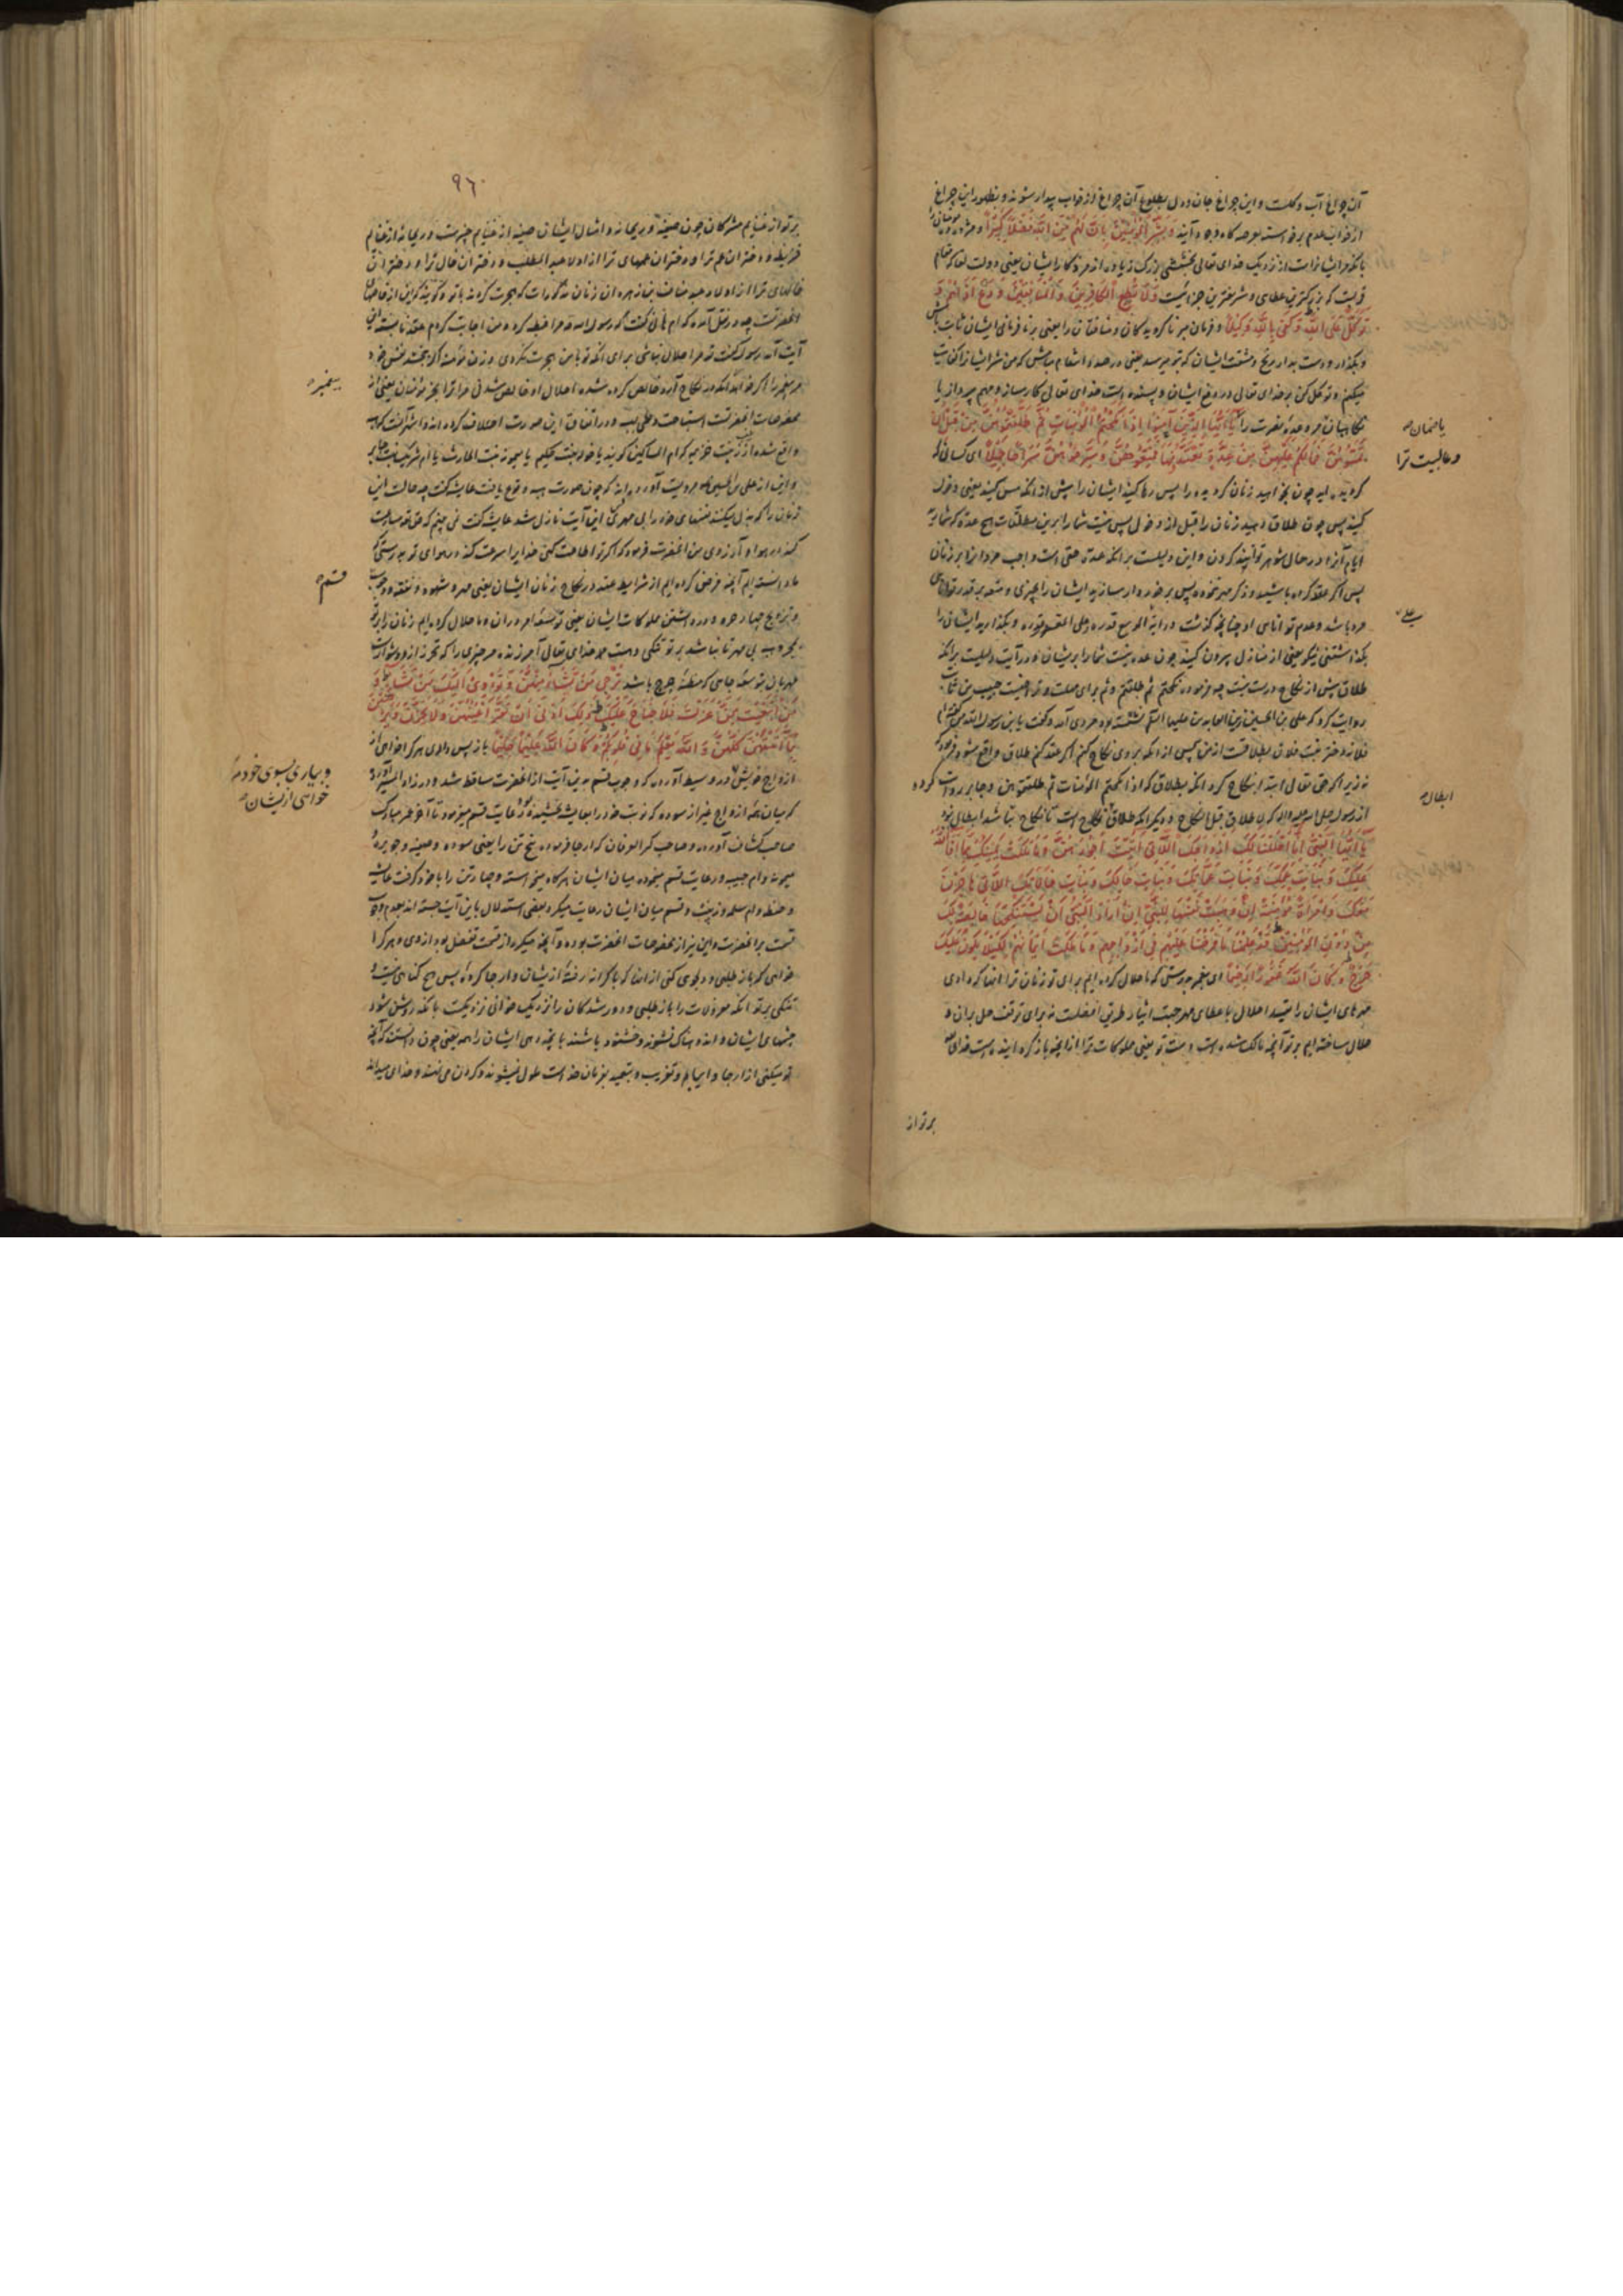 آن چراغ آب و گلست و این چراغ جان و دل بطلوع آن چراغ از خواب بیدار شوند و بظهور این چراغ
از خواب عدم برخواسته بعرصه گاه وجود آیند وَبَشِّرِ الْمُؤْمِنِينَ بِأَنَّ لَهُمْ مِنَ اللَّهِ فَضْلًا كَبِيرًا و مژده ده مومنان را
بانکه مر ایشانراست از نزدیک خدای تعالی بخششی بزرگ زیاده از مزد کار ایشان یعنی دولت لقا که
که بزرکترین عطای و شریفترین جزائیست وَلَا تُطِعِ الْكَافِرِينَ وَالْمُنَافِقِينَ وَدَعْ أَذَاهُمْ وَ
تَوَكَّلْ عَلَى اللَّهِ وَكَفَى بِاللَّهِ وَكِيلًا و فرمان مبر ناکرویدکان و منافقان را یعنی بر نافرمانی ایشان ثابت باش
و بگذار و دست بدار رنج و مشقت ایشان که بتو میرسد یعنی در صدد انتقام مباش که من شر ایشانرا کفایت
میکنم و توکل کن بر خدای تعالی در دفع ایشان و بسنده است خدای تعالی کارساز و مهم پرداز یا
نکاهبان مر وعدهٔ نصرت را يَا أَيُّهَا الَّذِينَ آمَنُوا إِذَا نَكَحْتُمُ الْمُؤْمِنَاتِ ثُمَّ طَلَّقْتُمُوهُنَّ مِنْ قَبْلِ أَنْ
تَمَسُّوهُنَّ فَمَا لَكُمْ عَلَيْهِنَّ مِنْ عِدَّةٍ تَعْتَدُّونَهَا فَمَتِّعُوهُنَّ وَسَرِّحُوهُنَّ سَرَاحًا جَمِيلًا ای کسانی که
کرویده اید چون بخواهید زنان کرویده را پس رها کنید ایشان را پیش از انکه مس کنید یعنی دخول
کنید پس چون طلاق دهید زنان را قبل از دخول پس نیست شما را برین مطلقات هیچ عده که شمارید
ایام آنرا در حال شوهر توانند کردن و این دلیلست بر انکه عده حقی است واجب مردانرا بر زنان
پس اکر عقد کرده باشید و ذکر مهر نبوده پس برخوردار سازید ایشان را بچیزی و متعه بر قدر توانای
مرد باشد و عدم توانای او چنانچه کذشت در آیهٔ الموسع قدره و علی المقتر قدره و بگذارید ایشان را
بکذاشتنی نیکو یعنی از منازل بیرون کنید چون عده نیست شما را بر ایشان و در آیت دلیلیست بر انکه
طلاق پیش از نکاح درست نیست چه فرموده نکحتم ثم طلقتم و ثم برای مهلت و تراخیست حبیب بن ثابت
روایت کرد که علی بن الحسین زین العابدین علیهما السلم نشسته بود مردی آمد و گفت یا بن رسول الله من گفته ام
فلانه دختر بنت فلان بطلاقست از من پس از انکه بر وی نکاح کنم اکر عقد کنم طلاق واقع شود فرمود
نه زیرا که حق تعالی ابتدا بنکاح کرد انکه بطلاق که اذا نکحتم المؤمنات ثم طلقتموهن و جابر روایت کرده
از رسول صلی الله علیه واله که لا طلاق قبل النکاح و دیکر انکه طلاق نکاح است تا نکاح نباشد ابطال نبود
يَا أَيُّهَا النَّبِيُّ إِنَّا أَحْلَلْنَا لَكَ أَزْوَاجَكَ اللَّاتِي آتَيْتَ أُجُورَهُنَّ وَمَا مَلَكَتْ يَمِينُكَ مِمَّا أَفَاءَ اللَّهُ
عَلَيْكَ وَبَنَاتِ عَمِّكَ وَبَنَاتِ عَمَّاتِكَ وَبَنَاتِ خَالِكَ وَبَنَاتِ خَالَاتِكَ اللَّاتِي هَاجَرْنَ
مَعَكَ وَامْرَأَةً مُؤْمِنَةً إِنْ وَهَبَتْ نَفْسَهَا لِلنَّبِيِّ إِنْ أَرَادَ النَّبِيُّ أَنْ يَسْتَنْكِحَهَا خَالِصَةً لَكَ
مِنْ دُونِ الْمُؤْمِنِينَ قَدْ عَلِمْنَا مَا فَرَضْنَا عَلَيْهِمْ فِي أَزْوَاجِهِمْ وَمَا مَلَكَتْ أَيْمَانُهُمْ لِكَيْلَا يَكُونَ عَلَيْكَ
حَرَجٌ وَكَانَ اللَّهُ غَفُورًا رَحِيمًا ای پیغمبر بدرستی که ما حلال کرده ایم برای تو زنان ترا انها که دادی
مهرهای ایشان را تقیید احلال باعطای مهر جهت ایثار طریق افضلست نه برای توقف حل بران و
حلال ساخته ایم بر تو آنچه مالک شده است دست تو یعنی مملوکات ترا از انچه باز کردانیده است خدای
برتو از
یا ضمان
و عالیست ترا
ابطال
٩٦٠
برتو از غنایم مشرکان چون صفیه و ریحانه و امثال ایشان صفیه از غنایم خیبرست و ریحانه از غنایم
قریظه و دختران عم ترا و دختران عمهای ترا از اولاد عبد المطلب و دختران خال ترا و دختران
خالهای ترا از اولاد عبد مناف بن زهره آن زنان مذکورات که هجرت کردند با تو و کویند که این از
انحضرتست چه در نقل آمده که ام هانی گفت که رسول الله مرا خطبه کرد و من اجابت کردم
آیت آمد رسول گفت تو مرا حلال نباشی برای انکه تو با من هجرت نکردی و زن مؤمنه اکر بخشد نفس خود
مر پیغمبر را اکر خواهد انکه در نکاح آرد خالص کرده شده احلال او خالص شدنی مر ترا بجز مؤمنان یعنی از
مخصوصات انحضرتست استباحت وطی بهبه و در اتفاق این صورت اختلاف کرده اند و اشهر آنست که
واقع شده از زینب خزیمه که ام المساکین کویند یا خوله بنت حکیم یا میمونه بنت الحارث یا ام شریک
و این از علی بن الحسین مرویست آورده اند که چون صورت هبه وقوع یافت عایشه گفت چه حالست این
زنان را که بذل میکنند نفسهای خود را بی مهر این آیت نازل شد عایشه گفت نمی بینم که حق تو
کند در هوا و آرزوی من انحضرت فرمود که اکر تو اطاعت کنی خدایرا سرعت کند در هوای تو بدرستی که
ما دانسته ایم آنچه فرض کرده ایم از شرایط عقد در نکاح زنان ایشان یعنی مهر و شهود و نفقه و وجوب
و تزویج چهار حره و در داشتن مملوکات ایشان یعنی توسعه امر دران و ما حلال کرده ایم زنان را بر تو
بمجرد هبه بی مهر تا نباشد بر تو تنکی و هست خدای تعالی آمرزنده هر چیزی را که تحرز ازو دشوارست
مهربان بتوسعه جای که مظنهٔ حرج باشد تُرْجِي مَنْ تَشَاءُ مِنْهُنَّ وَتُؤْوِي إِلَيْكَ مَنْ تَشَاءُ وَ
مَنِ ابْتَغَيْتَ مِمَّنْ عَزَلْتَ فَلَا جُنَاحَ عَلَيْكَ ذَلِكَ أَدْنَى أَنْ تَقَرَّ أَعْيُنُهُنَّ وَلَا يَحْزَنَّ وَيَرْضَيْنَ
بِمَا آتَيْتَهُنَّ كُلُّهُنَّ وَاللَّهُ يَعْلَمُ مَا فِي قُلُوبِكُمْ وَكَانَ اللَّهُ عَلِيمًا حَلِيمًا باز پس داری هر کرا خواهی از
ازواج خویش در وسیط آورده که وجوب قسم بدین آیت از انحضرت ساقط شد و در زاد المسیر آورده
که میان همهٔ ازواج غیر از سوده که نوبت خود را بعایشه بخشیده بود رعایت قسم میفرمود تا آخر عمر مبارک
صاحب کشاف آورده و صاحب کنز العرفان که ارجا فرموده پنج تن را یعنی سوده و صفیه و جویریه و
میمونه و ام حبیبه و رعایت قسم مینموده میان ایشان هرکاه میخواسته و چهار تن را با خود گرفت عایشه
و حفصه و ام سلمه و زینب و قسم میان ایشان رعایت میکرد و بعضی استدلال باین آیت جسته اند بعدم وجوب
قسمت بر انحضرت و این نیز از مخصوصات انحضرت بوده و آنچه میکرد از قسمت تفضل بود از وی و هر کرا
خواهی که باز طلبی و دلجوی کنی از انها که باکرانه رفتهٔ ازیشان و ارجا کردهٔ پس هیچ کناهی نیست و
تنکی بر تو انکه معزولات را باز طلبی و دورشدکان را نزدیک خوانی نزدیکست بانکه روشن شود
چشمهای ایشان و اندوهناک نشوند و خشنود باشند بآنچه دهی ایشان را همه یعنی چون دانستند که آنچه
تو میکنی از ارجا و ایوا و تقریب و تبعید بفرمان خداست ملول نمیشوند و کردن می نهند و خدای میداند
پیغمبر
قسم
و بیاری بسوی خود هر
خواهی ازیشان